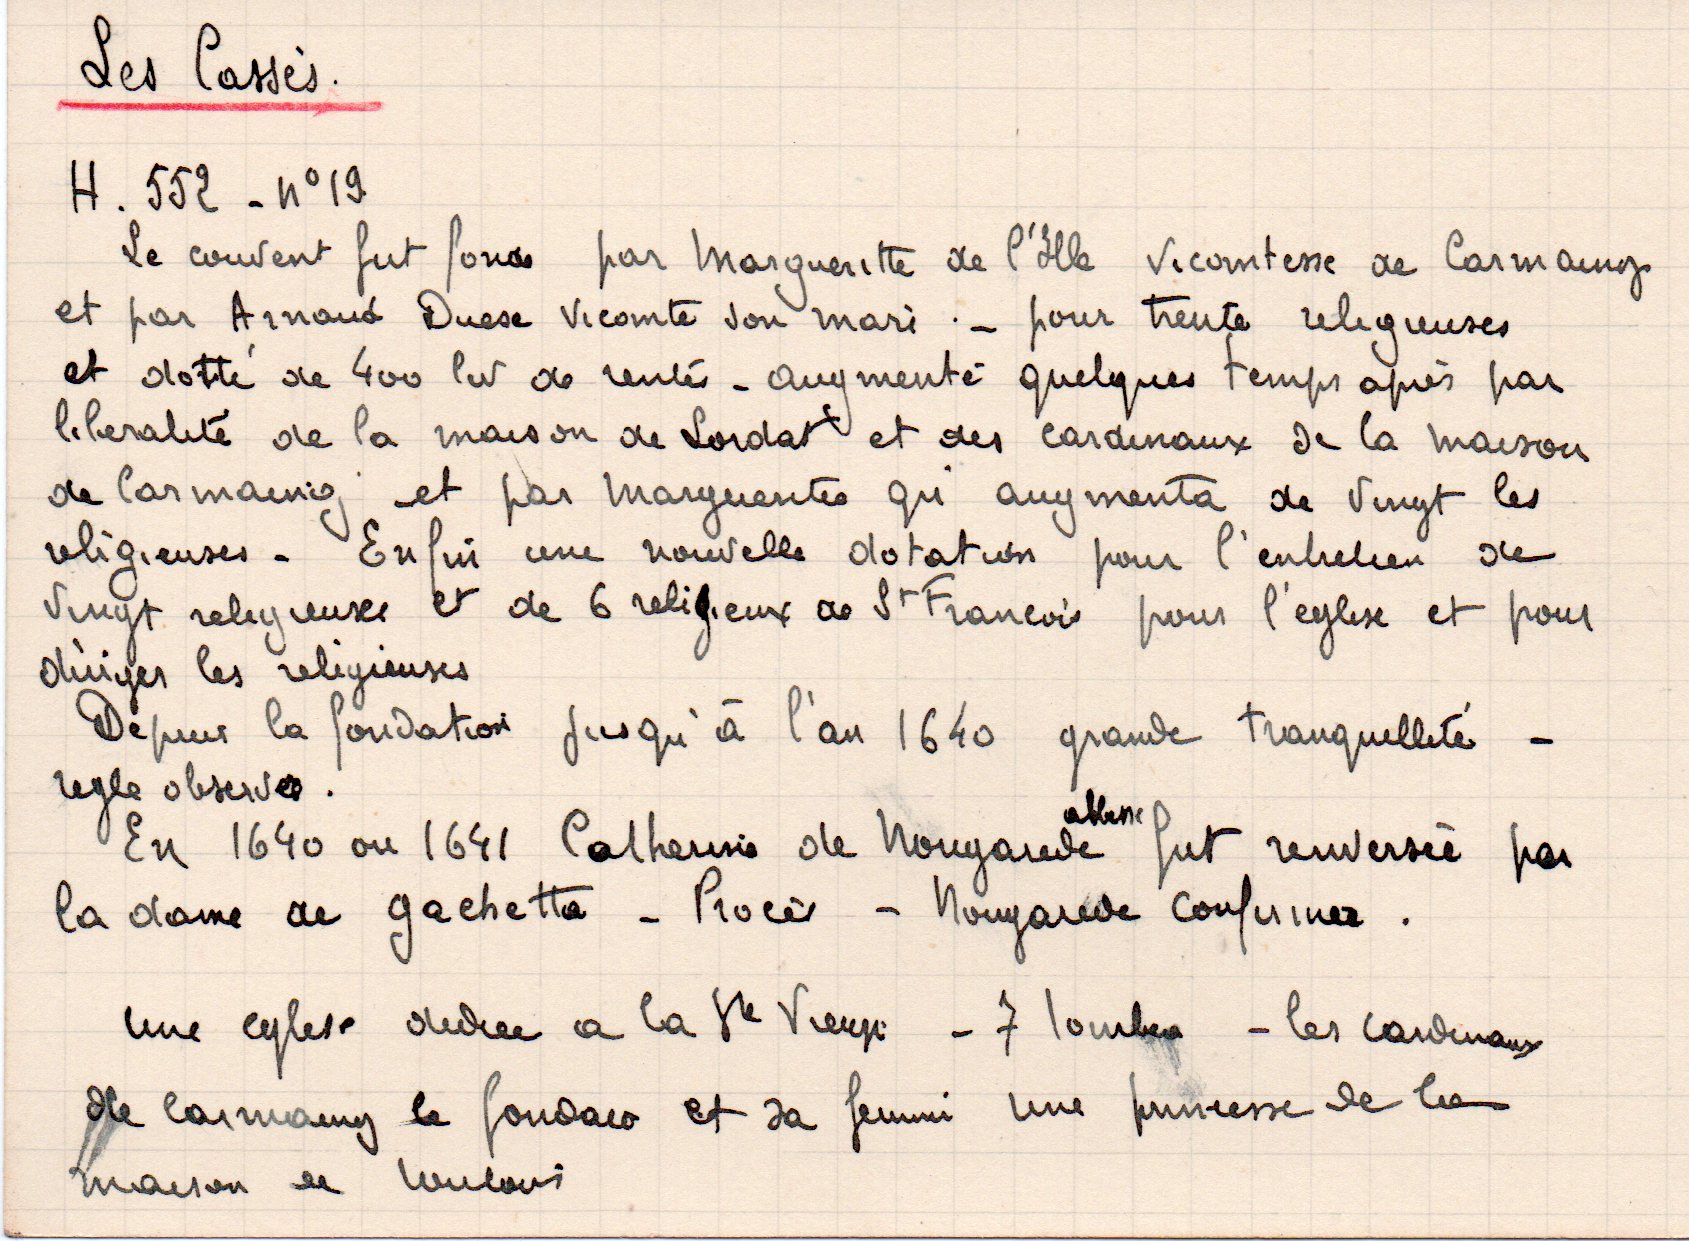 Les Cassés.
H. 552 - n° 19
Le couvent fut fondé par Margueritte de l'Ille Vicomtesse de Carmaing
et par Arnaud Duese Vicomte son mari. - pour trente religieuses
et dotté de 400 liv de rentes - augmenté quelques temps après par
liberalité de la maison de Lordat et des cardinaux de la maison
de Carmaing et par Marguerite qui augmenta de vingt les
religieuses - Enfin une nouvelle dotation pour l'entretien de
vingt religieuses et de 6 religieux de St Francois pour l'eglise et pour
diriger les religieuses
Depuis la fondation jusqu'à l'an 1640 grande tranquillité -
regle observée.
En 1640 ou 1641 Catherine de Nougarede abbesse fut renversée par
la dame de Gachette - Procès - Nougarede confirmée.
Une eglise dediee a la Ste Vierge - 7 tombes - les cardinaux
de Carmaing le fondateur et sa femme une princesse de la
maison de